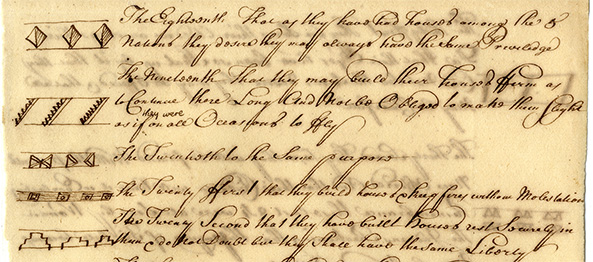 The Eighteenth That as they have had houses among the 5
Nations they desire they may always have the Same Priviledge
The Nineteenth That they may build their houses ffirm as
to Continue there Long And Not be Obliged to make them Slight
as if they were on all Occasions to ffly
The Twentieth to the Same purpose
The Twenty ffirst that they build houses & keep fires without Molestation
The Twenty Second that they have built Houses rest Securely in
them & do Not Doubt but they Shall have the Same Liberty